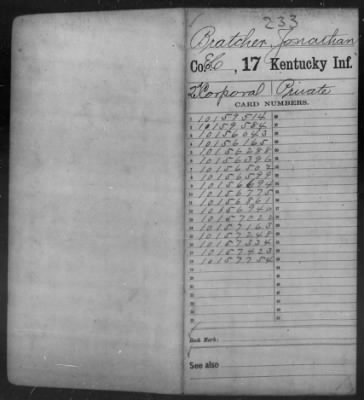 233
Bratcher, Jonathan
Co. , 17 Kentucky Inf.
Corporal | Private
CARD NUMBERS.
1 10159514
2 10159584
3 10156043
4 10156165
5 10156288
6 10156396
7 10156507
8 10156579
9 10156694
10 10156775
11 10156861
12 10156940
13 10157020
14 10157163
15 10157248
16 10157334
17 10157423
18 10157754
Book Mark:
See also